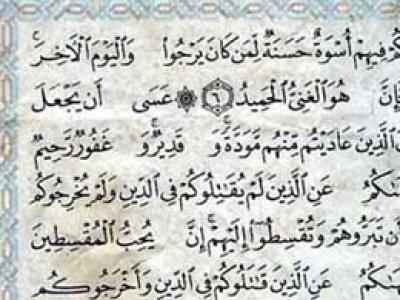 كُمْ فِيهِمْ أُسْوَةٌ حَسَنَةٌ لِّمَن كَانَ يَرْجُوا۟ وَٱلْيَوْمَ ٱلْـَٔاخِرَ ۚ
فَإِنَّ هُوَ ٱلْغَنِىُّ ٱلْحَمِيدُ ٦ عَسَى أَن يَجْعَلَ
نَ ٱلَّذِينَ عَادَيْتُم مِّنْهُم مَّوَدَّةً ۚ وَ قَدِيرٌ ۚ وَ غَفُورٌ رَّحِيمٌ
هَىٰكُمُ عَنِ ٱلَّذِينَ لَمْ يُقَـٰتِلُوكُمْ فِى ٱلدِّينِ وَلَمْ يُخْرِجُوكُم
أَن تَبَرُّوهُمْ وَتُقْسِطُوٓا۟ إِلَيْهِمْ ۚ إِنَّ يُحِبُّ ٱلْمُقْسِطِينَ
هَىٰكُمُ عَنِ ٱلَّذِينَ قَـٰتَلُوكُمْ فِى ٱلدِّينِ وَأَخْرَجُوكُم